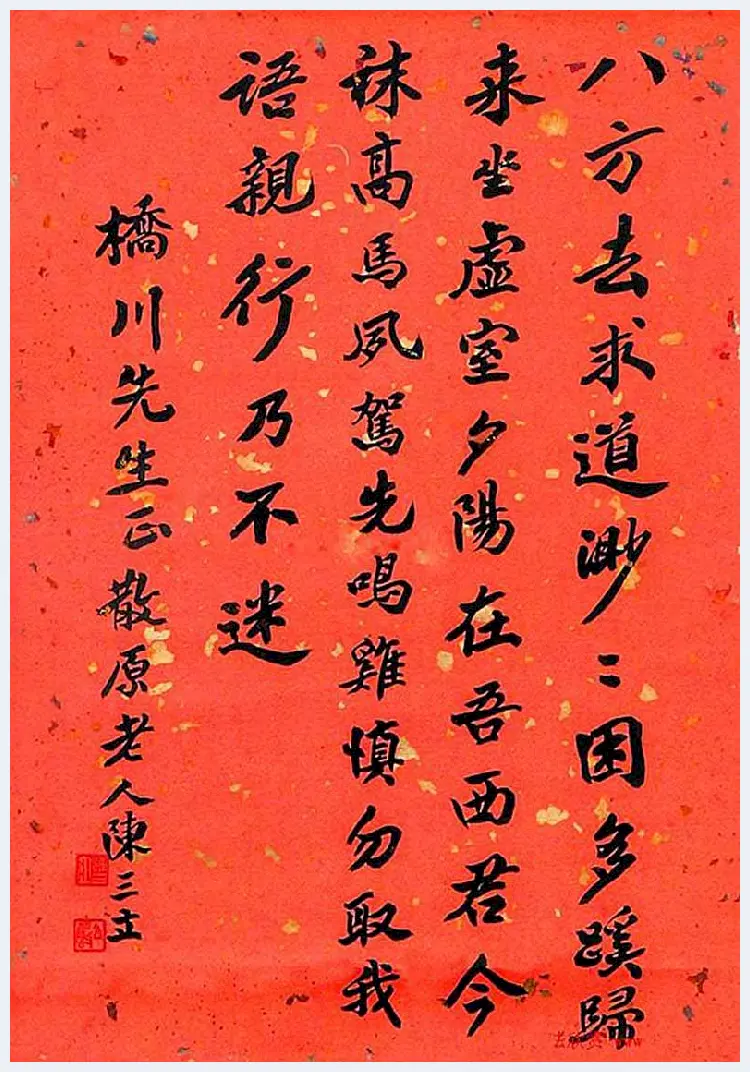 八方去求道渺〻困多蹊歸
来坐虚室夕陽在吾西君今
秣高馬夙駕先鳴雞慎勿取我
語親行乃不迷
橋川先生正散原老人陳三立